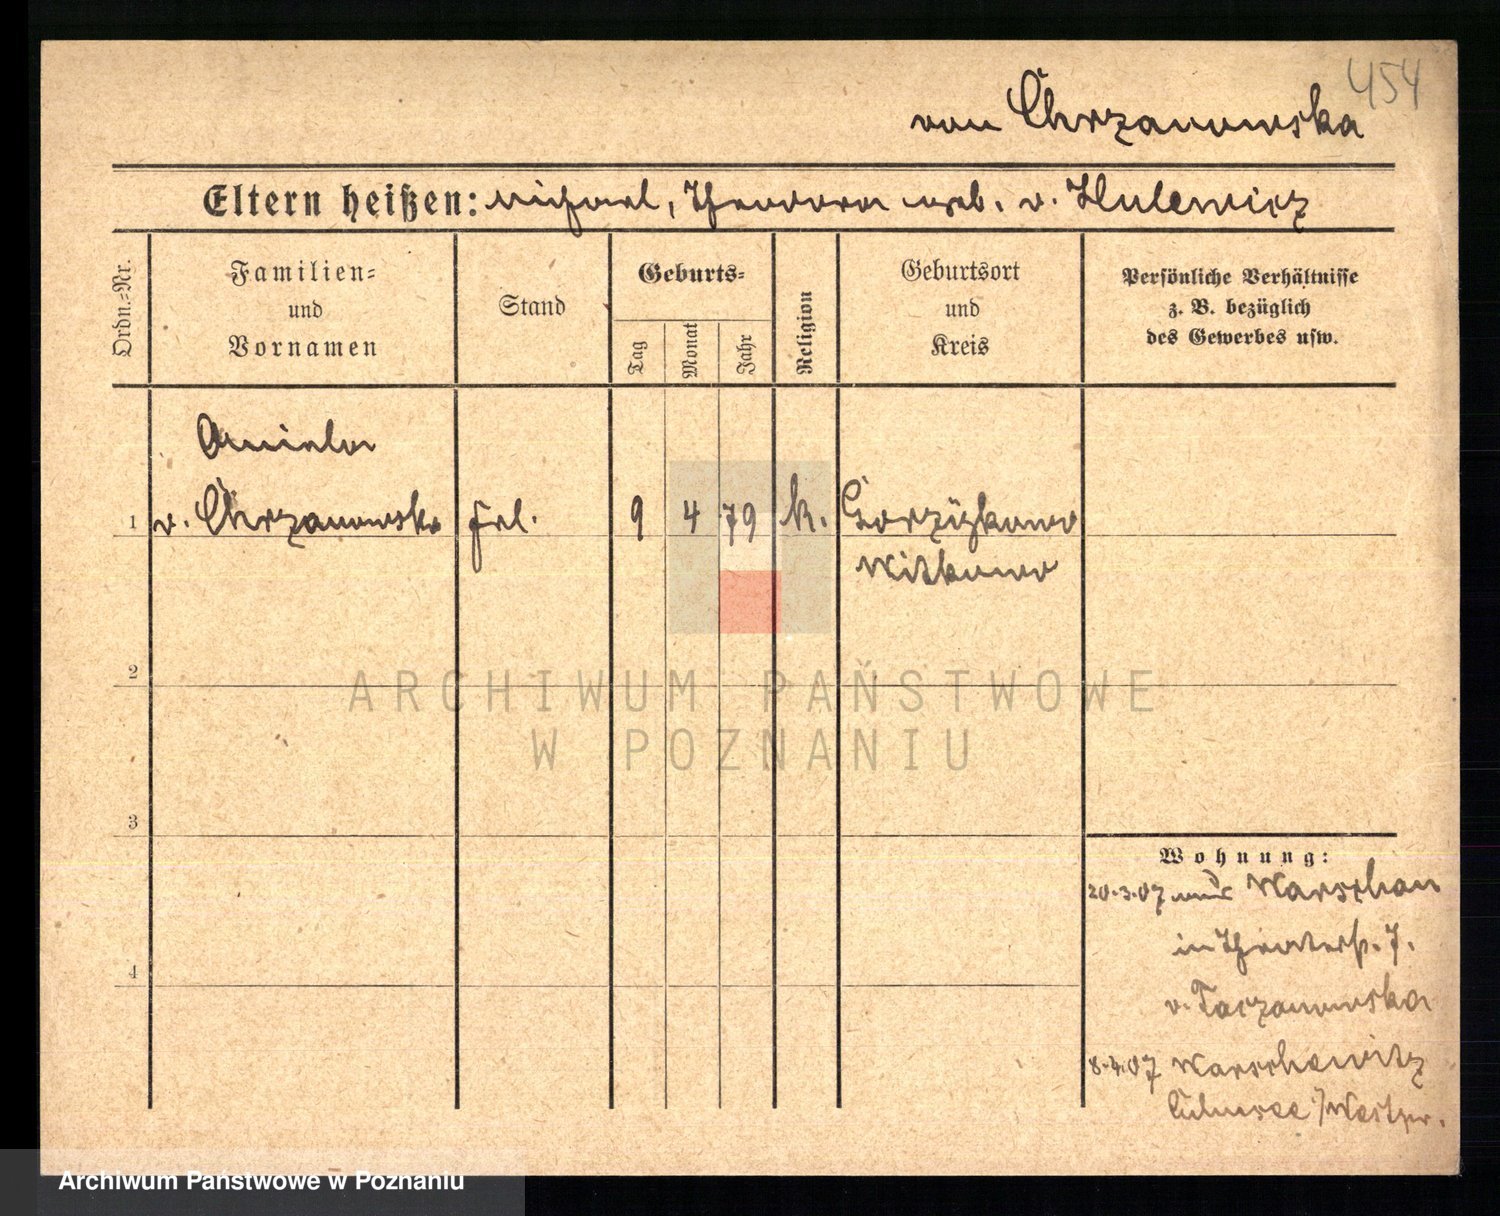 454
von Chrzanowska
Eltern heißen: Michael, Theodora geb. v. Hulewicz
Ordn.-Nr.
Familien-
und
Vornamen
Stand
Geburts-
Tag
Monat
Jahr
Religion
Geburtsort
und
Kreis
Persönliche Verhältnisse
z. B. bezüglich
des Gewerbes usw.
Aniela
1 v. Chrzanowska Frl. 9 4 79 k.
Witkowo
2
3
4
ARCHIWUM PAŃSTWOWE
W POZNANIU
Wohnung:
20.3.07 Warschau
in Theaterstr. 7.
v. Taczanowska
8.4.07 Warschewitz
Culmsee /Westpr.
Archiwum Państwowe w Poznaniu